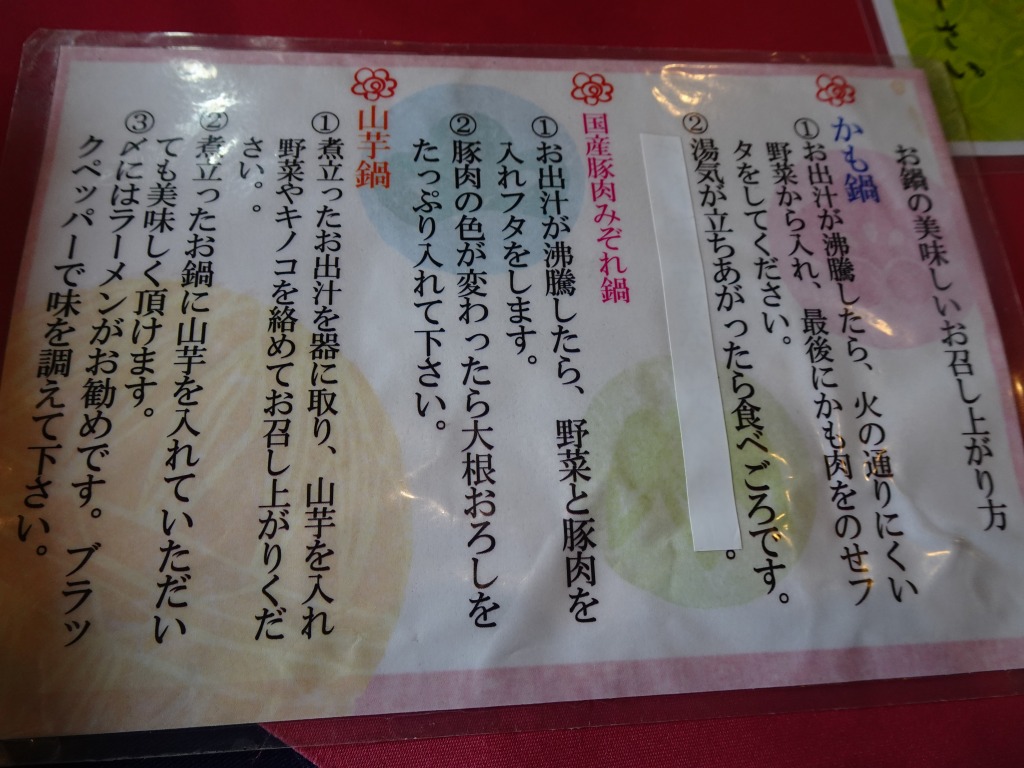 お鍋の美味しいお召し上がり方
かも鍋
①お出汁が沸騰したら、火の通りにくい
野菜から入れ、最後にかも肉をのせフ
タをしてください。
②湯気が立ちあがったら食べごろです。
。
国産豚肉みぞれ鍋
①お出汁が沸騰したら、野菜と豚肉を
入れフタをします。
②豚肉の色が変わったら大根おろしを
たっぷり入れて下さい。
山芋鍋
①煮立ったお出汁を器に取り、山芋を入れ
野菜やキノコを絡めてお召し上がりくだ
さい。。
②煮立ったお鍋に山芋を入れていただい
ても美味しく頂けます。
③〆にはラーメンがお勧めです。ブラッ
クペッパーで味を調えて下さい。
さい